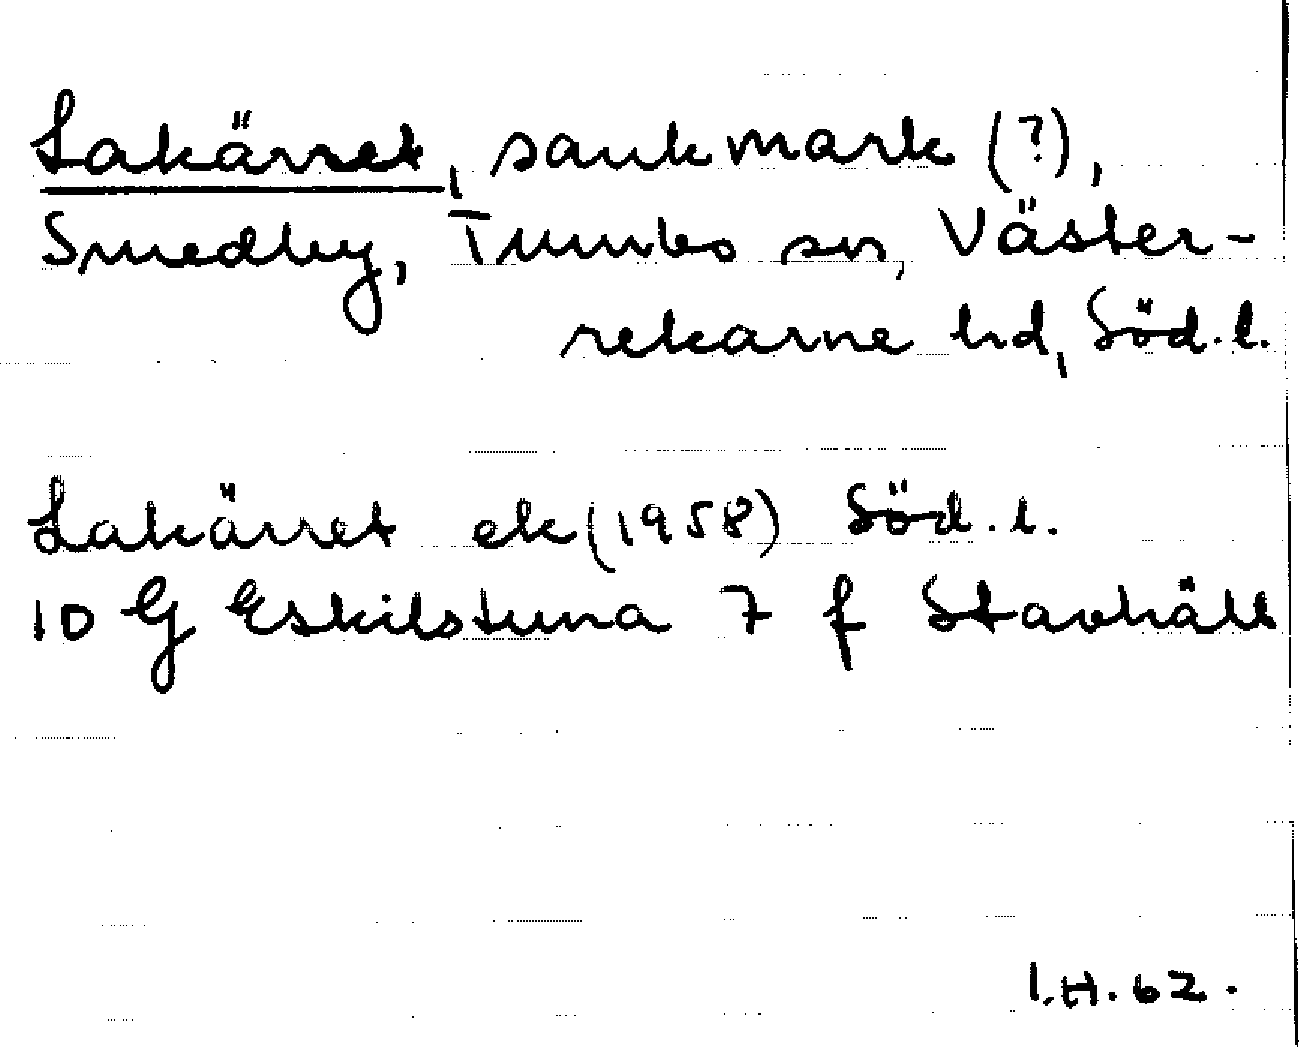 Lakärret, sankmark (?),
Smedby, Tumbo sn, Väster-
rekarne hd, Söd. l.
Lakärret ek (1958) Söd. l.
10 G Eskilstuna 7 f Stavhäll
I.H. 62.